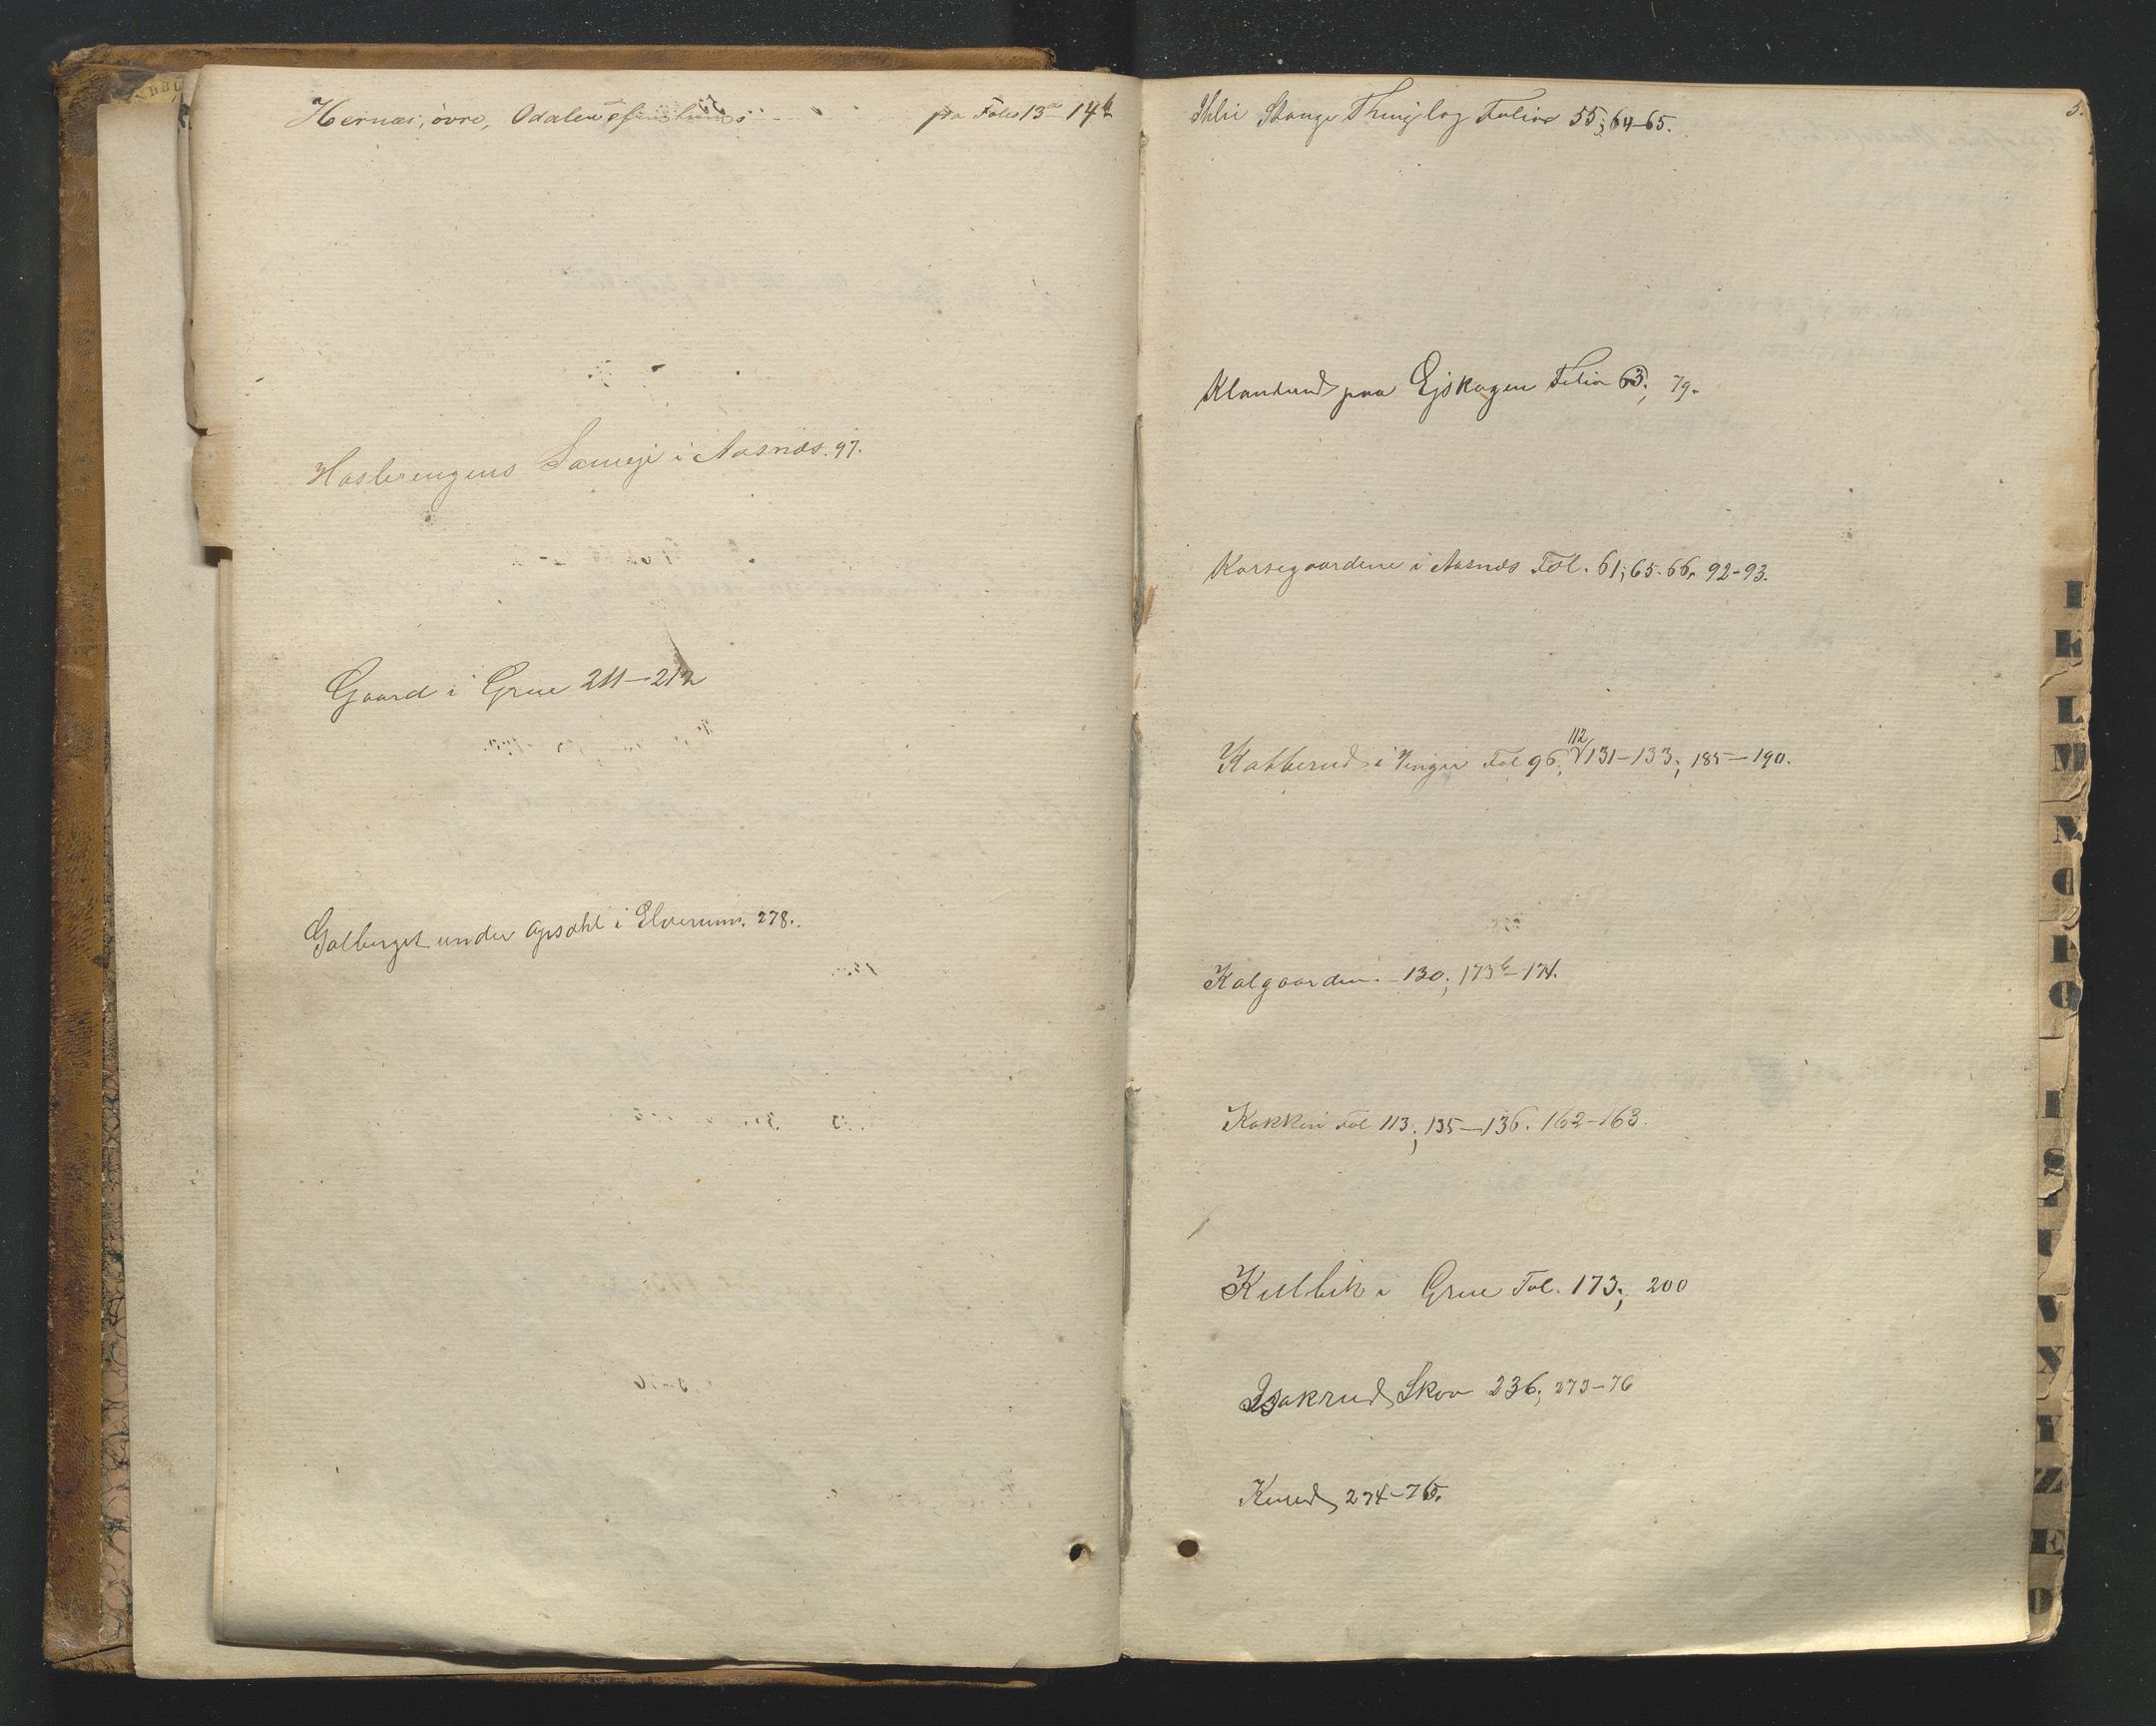 Hernæs, övre, Odalen paa Folio 13a–14b
Hasbrengens Sameje i Aasnæs. 97.
Gaard i Grue 211–212
Galberget under Opsahl i Elverum. 278.
5.
Ihlie Stange Thinglag Folio 55; 64–65.
Klanderud paa Ejskogen Folio 63; 79.
Korsegaardene i Aasnæs Fol. 61; 65-66, 92-93.
Kabberud i Vinger Fol 96; 112 131–133; 185–190.
Kalgaarden. 130; 173b–174.
Kakken Fol 113; 135–136. 162–163.
Kulblik i Grue Fol. 173; 200
Isakrud Skov 236; 273–76
Knud 274–76.
I
K
L
M
N
O
P
Q
V
X
Y
Z
Æ